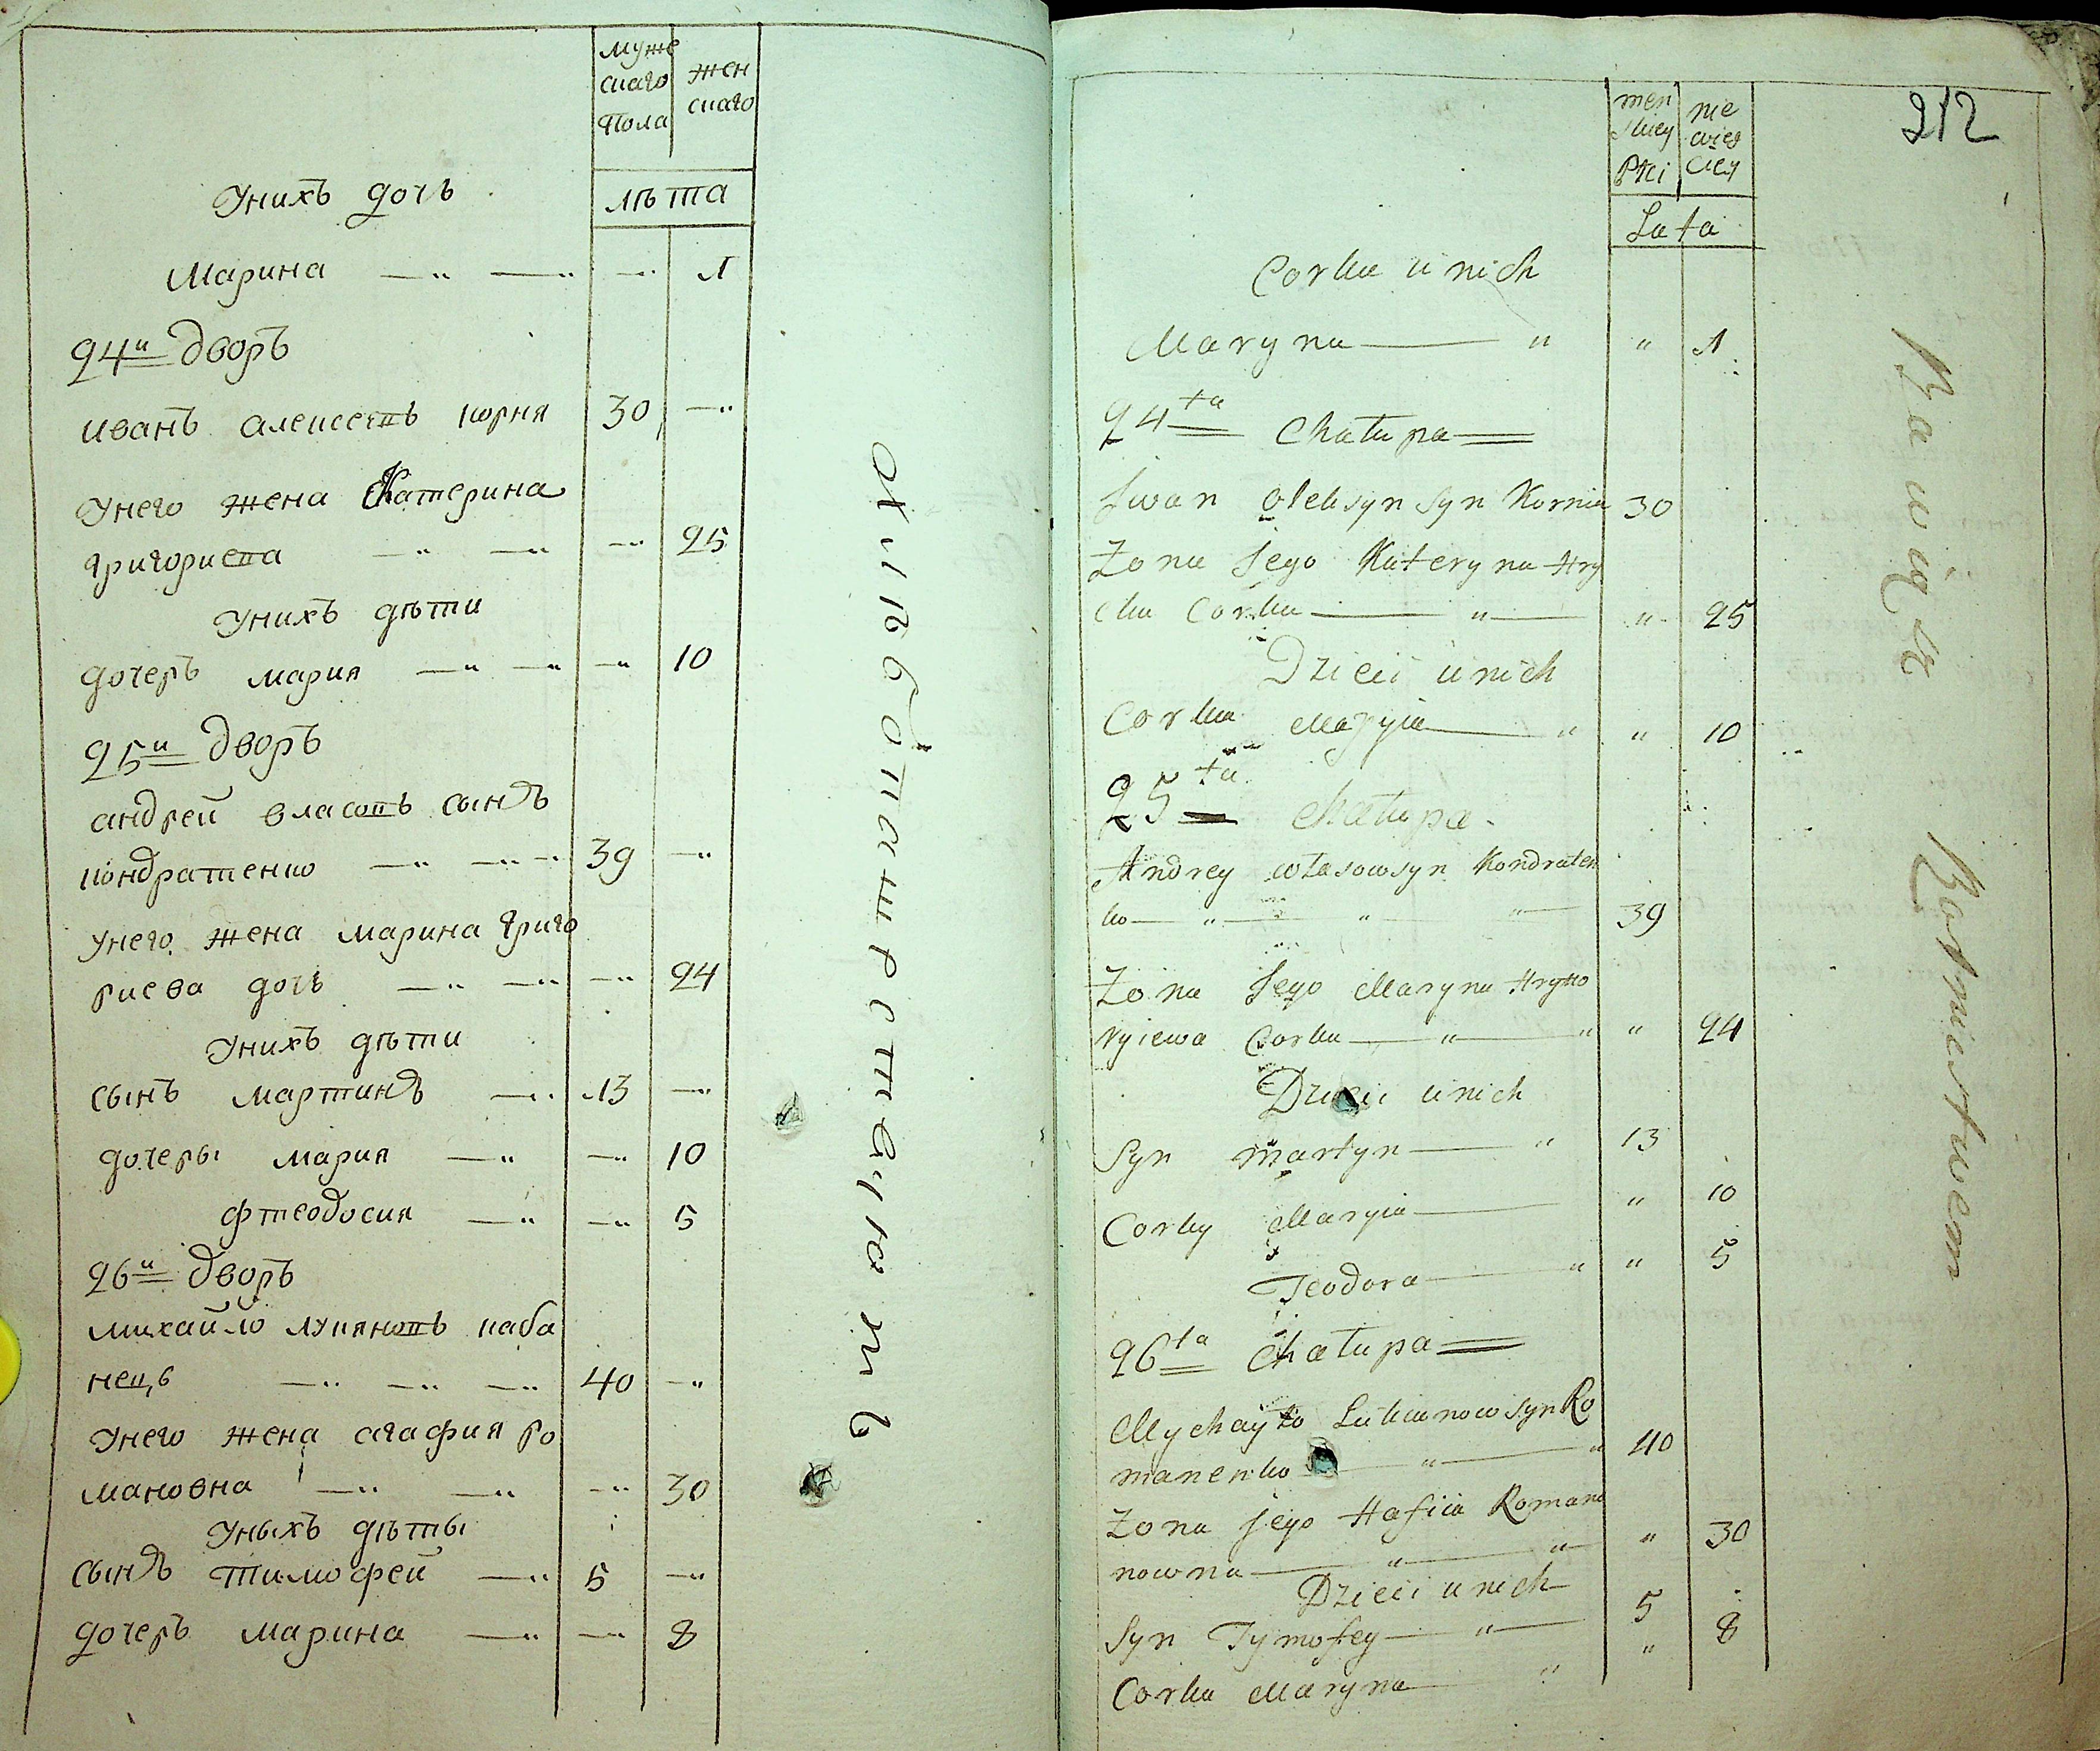 муже
скаго
пола
жен
скаго
лѣта
Унихъ дочь
Марина 1
24й дворъ
иванъ алексеевъ корня 30
Унего жена Катерина
григориева 25
Унихъ дѣти
дочерь мария 10
25й дворъ
андрей власовъ сынъ
кондратенко 39
Унего жена марина григо
риева дочь 24
Унихъ дѣти
сынъ мартинъ 13
дочеры мария 10
фтеодосия 5
26й дворъ
михайло лукяновъ каба
нецъ 40
Унего жена агафия ро
мановна 30
Уныхъ дѣты
сынъ тимофей 5
дочерь марина 8
212
męn
skiey
Płci
nie
wies
ciey
Lata
Corka u nich
Maryna " " 1
24ta Chałupa
Iwan Oleksyn syn Kornia 30
Zona Jego Kateryna Hry
cka Corka " " 25
Dzieci u nich
Corka Maryia " " 10
25ta Chałupa
Andrey własow syn Kondraten
ko " " " 39
Zona Jego Maryna Hryho
ryiewa Corka " " " 24
Dzieci u nich
Syn Martyn " 13
Corky Maryia " 10
Teodora " " 5
26ta Chałupa
Mychayło Lukianow syn Ro
manenko " " 40
Zona Jego Hafiia Roma
nowna " " " 30
Dzieci u nich
Syn Tymofey " 5
Corka Maryna " " 8
Rotmistrwem